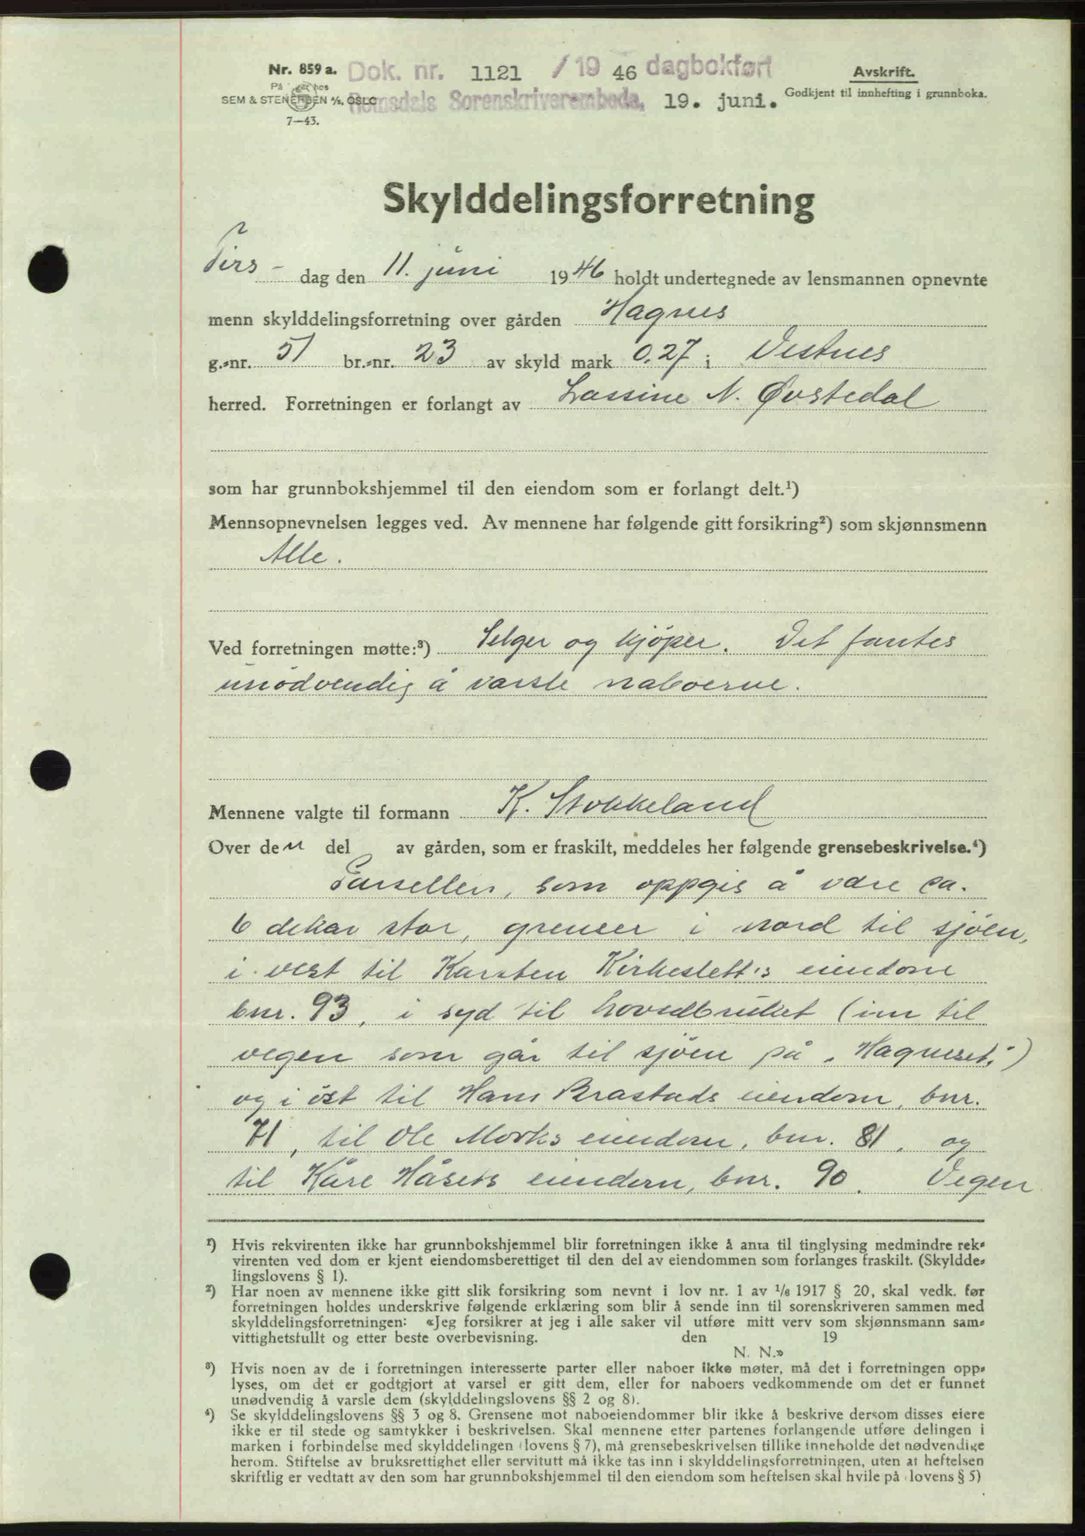 Nr. 859 a. Dok. nr. 1121 / 19 46 dagbokført Avskrift.
På hos
SEM & STENERSEN A/S, OSLO Romsdals Sorenskriverembede, 19. juni. Godkjent til innhefting i grunnboka.
7—43.
Skylddelingsforretning
Tirs- dag den 11. juni 1946 holdt undertegnede av lensmannen opnevnte
menn skylddelingsforretning over gården Hagnes
g.-nr. 51 br.-nr. 23 av skyld mark 0.27 i Vestnes
herred. Forretningen er forlangt av Lassine N. Øvstedal
som har grunnbokshjemmel til den eiendom som er forlangt delt.¹)
Mennsopnevnelsen legges ved. Av mennene har følgende gitt forsikring²) som skjønnsmenn
Alle.
Ved forretningen møtte:³) Selger og kjöper. Det fantes
unödvendig å varsle naboerne.
Mennene valgte til formann K. Stokkeland
Over den del av gården, som er fraskilt, meddeles her følgende grensebeskrivelse.⁴)
Parsellen, som oppgis å være ca.
6 dekar stor, grenser i nord til sjöen,
i vest til Karsten Kirkeslett's eiendom
bnr. 93, i syd til hovedbruket (inn til
vegen som går til sjöen på "Hagneset")
og i öst til Hans Brastads eiendom, bnr.
71, til Ole Morks eiendom, bnr. 81, og
til Kåre Håsets eiendom, bnr. 90. Vegen
¹) Hvis rekvirenten ikke har grunnbokshjemmel blir forretningen ikke å anta til tinglysing medmindre rek-
virenten ved dom er kjent eiendomsberettiget til den del av eiendommen som forlanges fraskilt. (Skyldde-
lingslovens § 1).
²) Har noen av mennene ikke gitt slik forsikring som nevnt i lov nr. 1 av 1/6 1917 § 20, skal vedk. før
forretningen holdes underskrive følgende erklæring som blir å sende inn til sorenskriveren sammen med
skylddelingsforretningen: «Jeg forsikrer at jeg i alle saker vil utføre mitt verv som skjønnsmann sam-
vittighetsfullt og etter beste overbevisning. den 19
N. N.»
³) Hvis noen av de i forretningen interesserte parter eller naboer ikke møter, må det i forretningen opp-
lyses, om det er godtgjort at varsel er gitt dem, eller for naboers vedkommende om det er funnet
unødvendig å varsle dem (skylddelingslovens §§ 2 og 8).
⁴) Se skylddelingslovens §§ 3 og 8. Grensene mot naboeiendommer blir ikke å beskrive dersom disses eiere
ikke er til stede og samtykker i beskrivelsen. Skal mennene etter partenes forlangende utføre delingen i
marken i forbindelse med skylddelingen (lovens § 7), må grensebeskrivelsen tillike inneholde det nødvendige
herom. Stiftelse av bruksrettighet eller servitutt må ikke tas inn i skylddelingsforretningen, uten at heftelsen
skriftlig er vedtatt av den som har grunnbokshjemmel til den eiendom som heftelsen skal hvile på (lovens § 5)